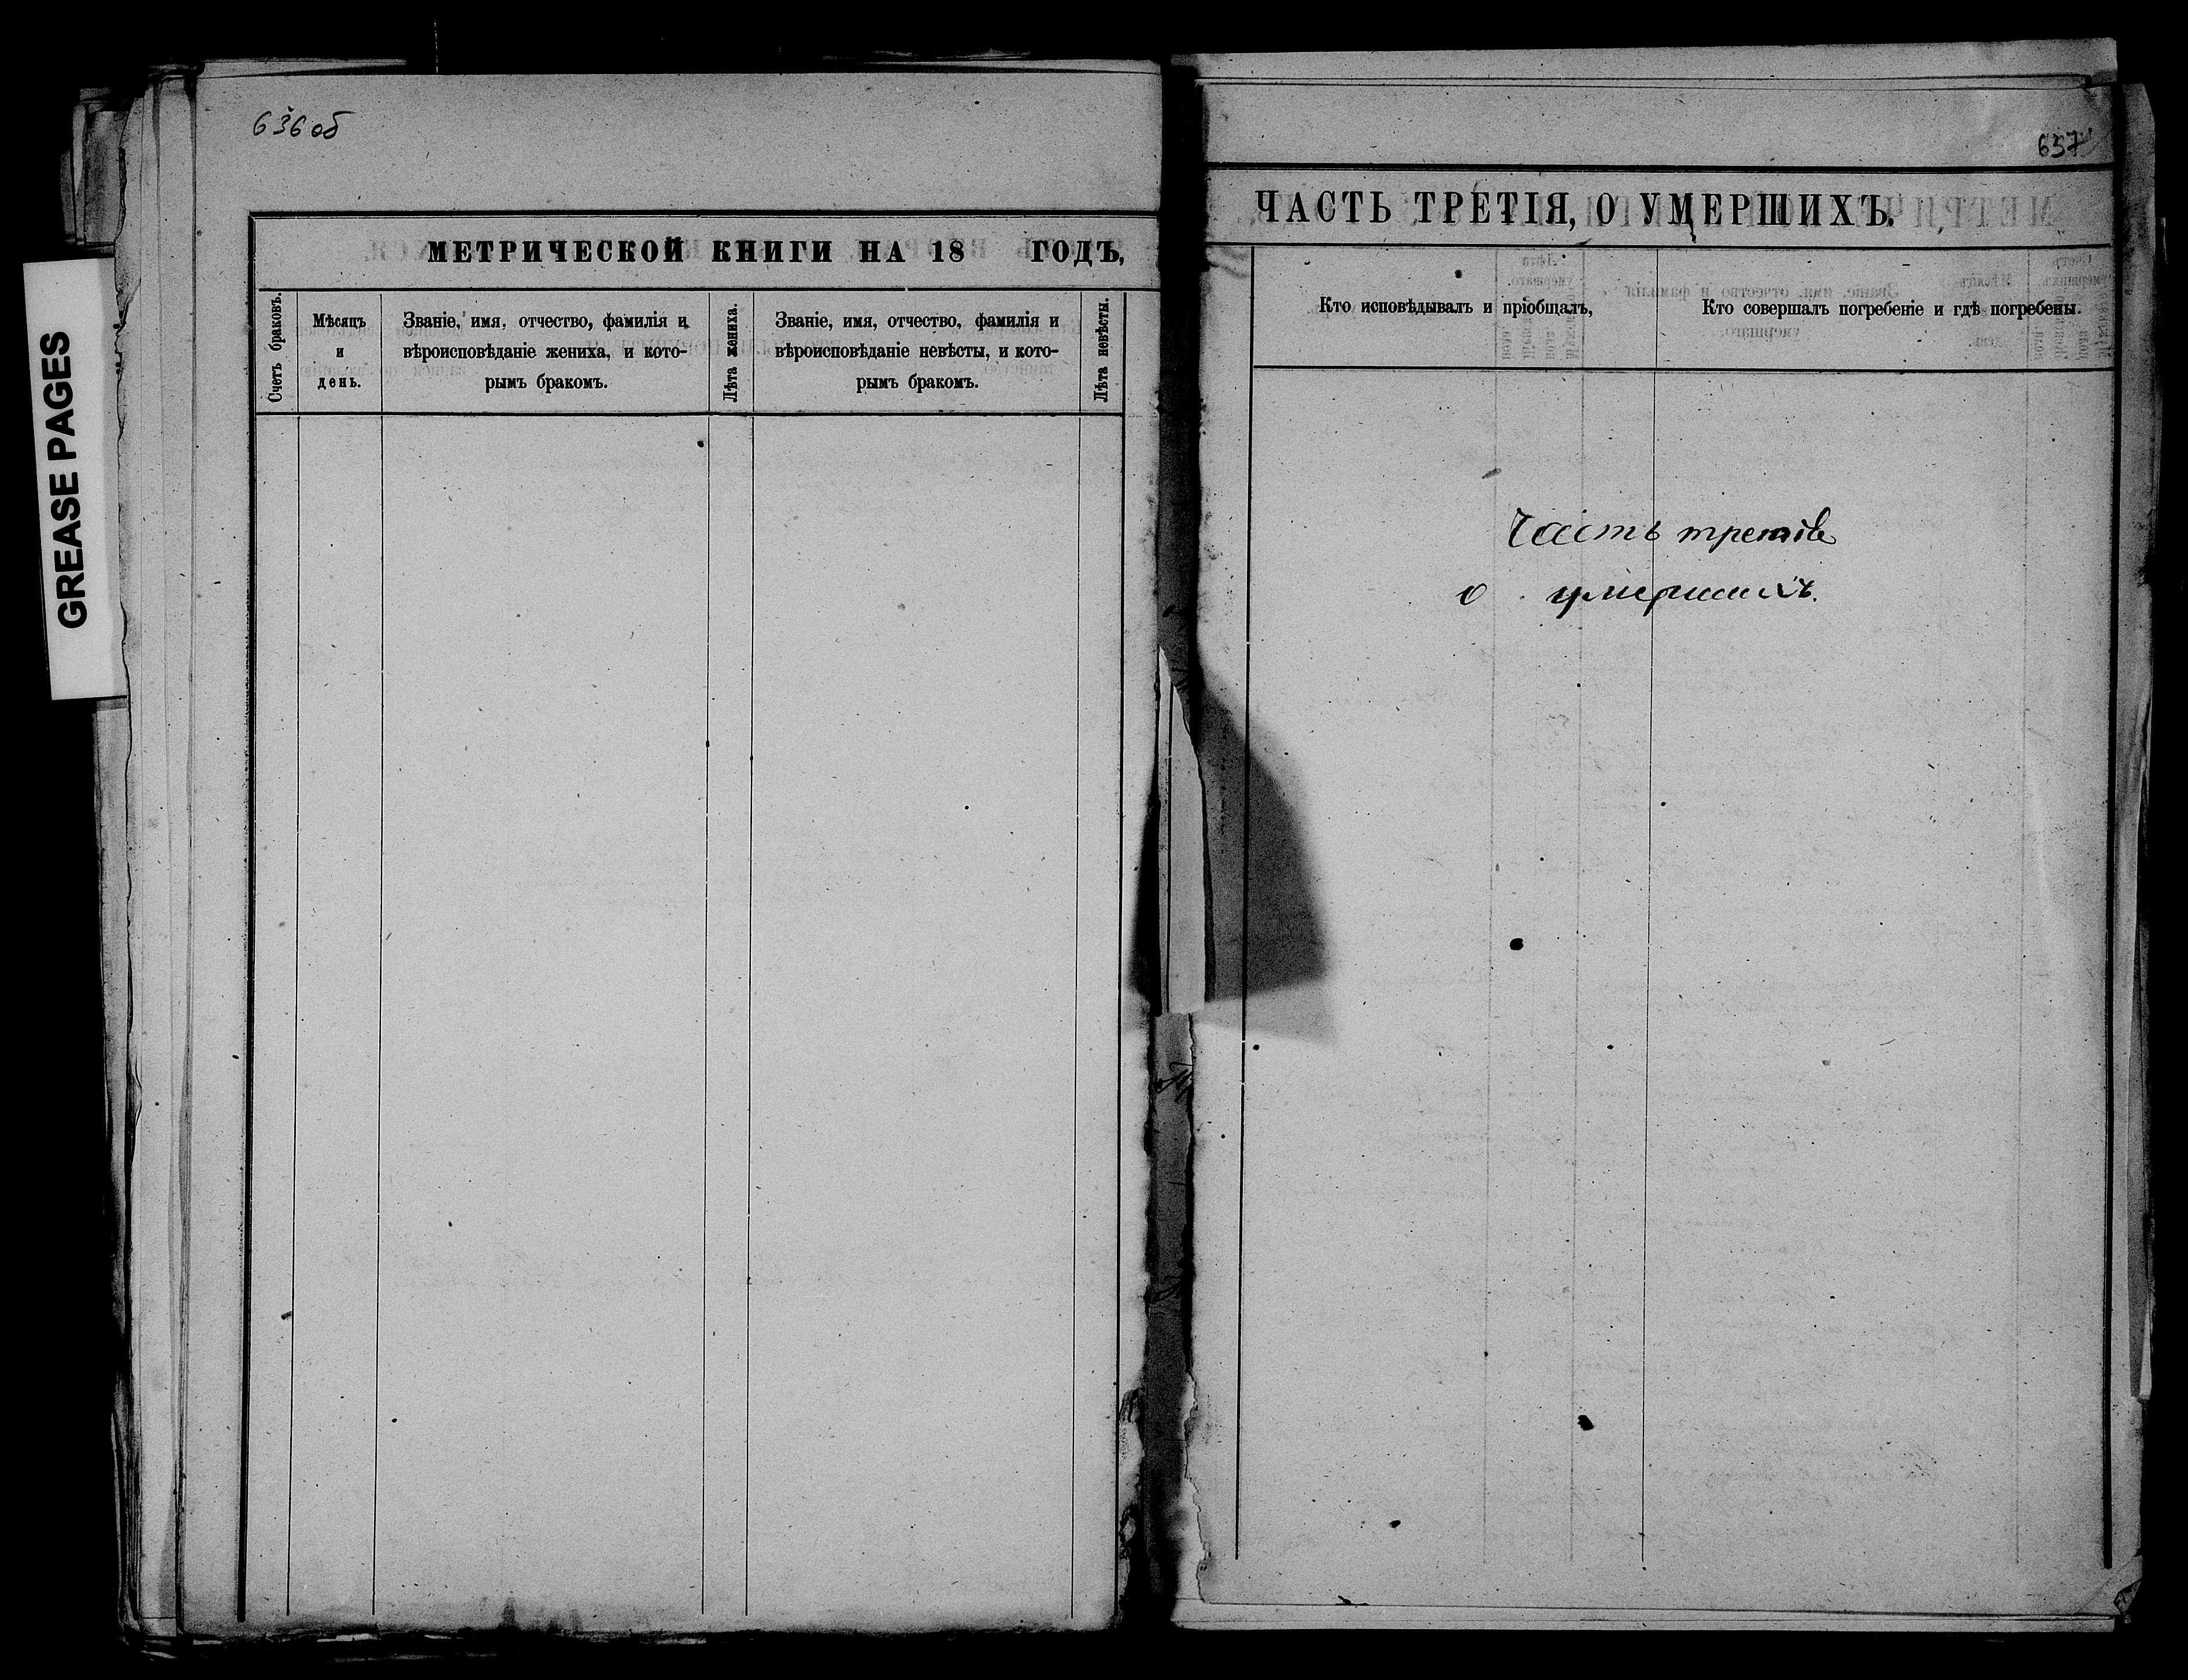 636об
МЕТРИЧЕСКОЙ КНИГИ НА 18 ГОДЪ,
Счетъ браковъ.
Мѣсяцъ
и
день.
Званіе, имя, отчество, фамилія и
вѣроисповѣданіе жениха, и кото-
рымъ бракомъ.
Лѣта жениха.
Званіе, имя, отчество, фамилія и
вѣроисповѣданіе невѣсты, и кото-
рымъ бракомъ.
Лѣта невѣсты.
GREASE PAGES
637
ЧАСТЬ ТРЕТІЯ, О УМЕРШИХЪ.
Кто исповѣдывалъ и пріобщалъ,
Кто совершалъ погребеніе и гдѣ погребены.
Часть третія
о умершихъ.